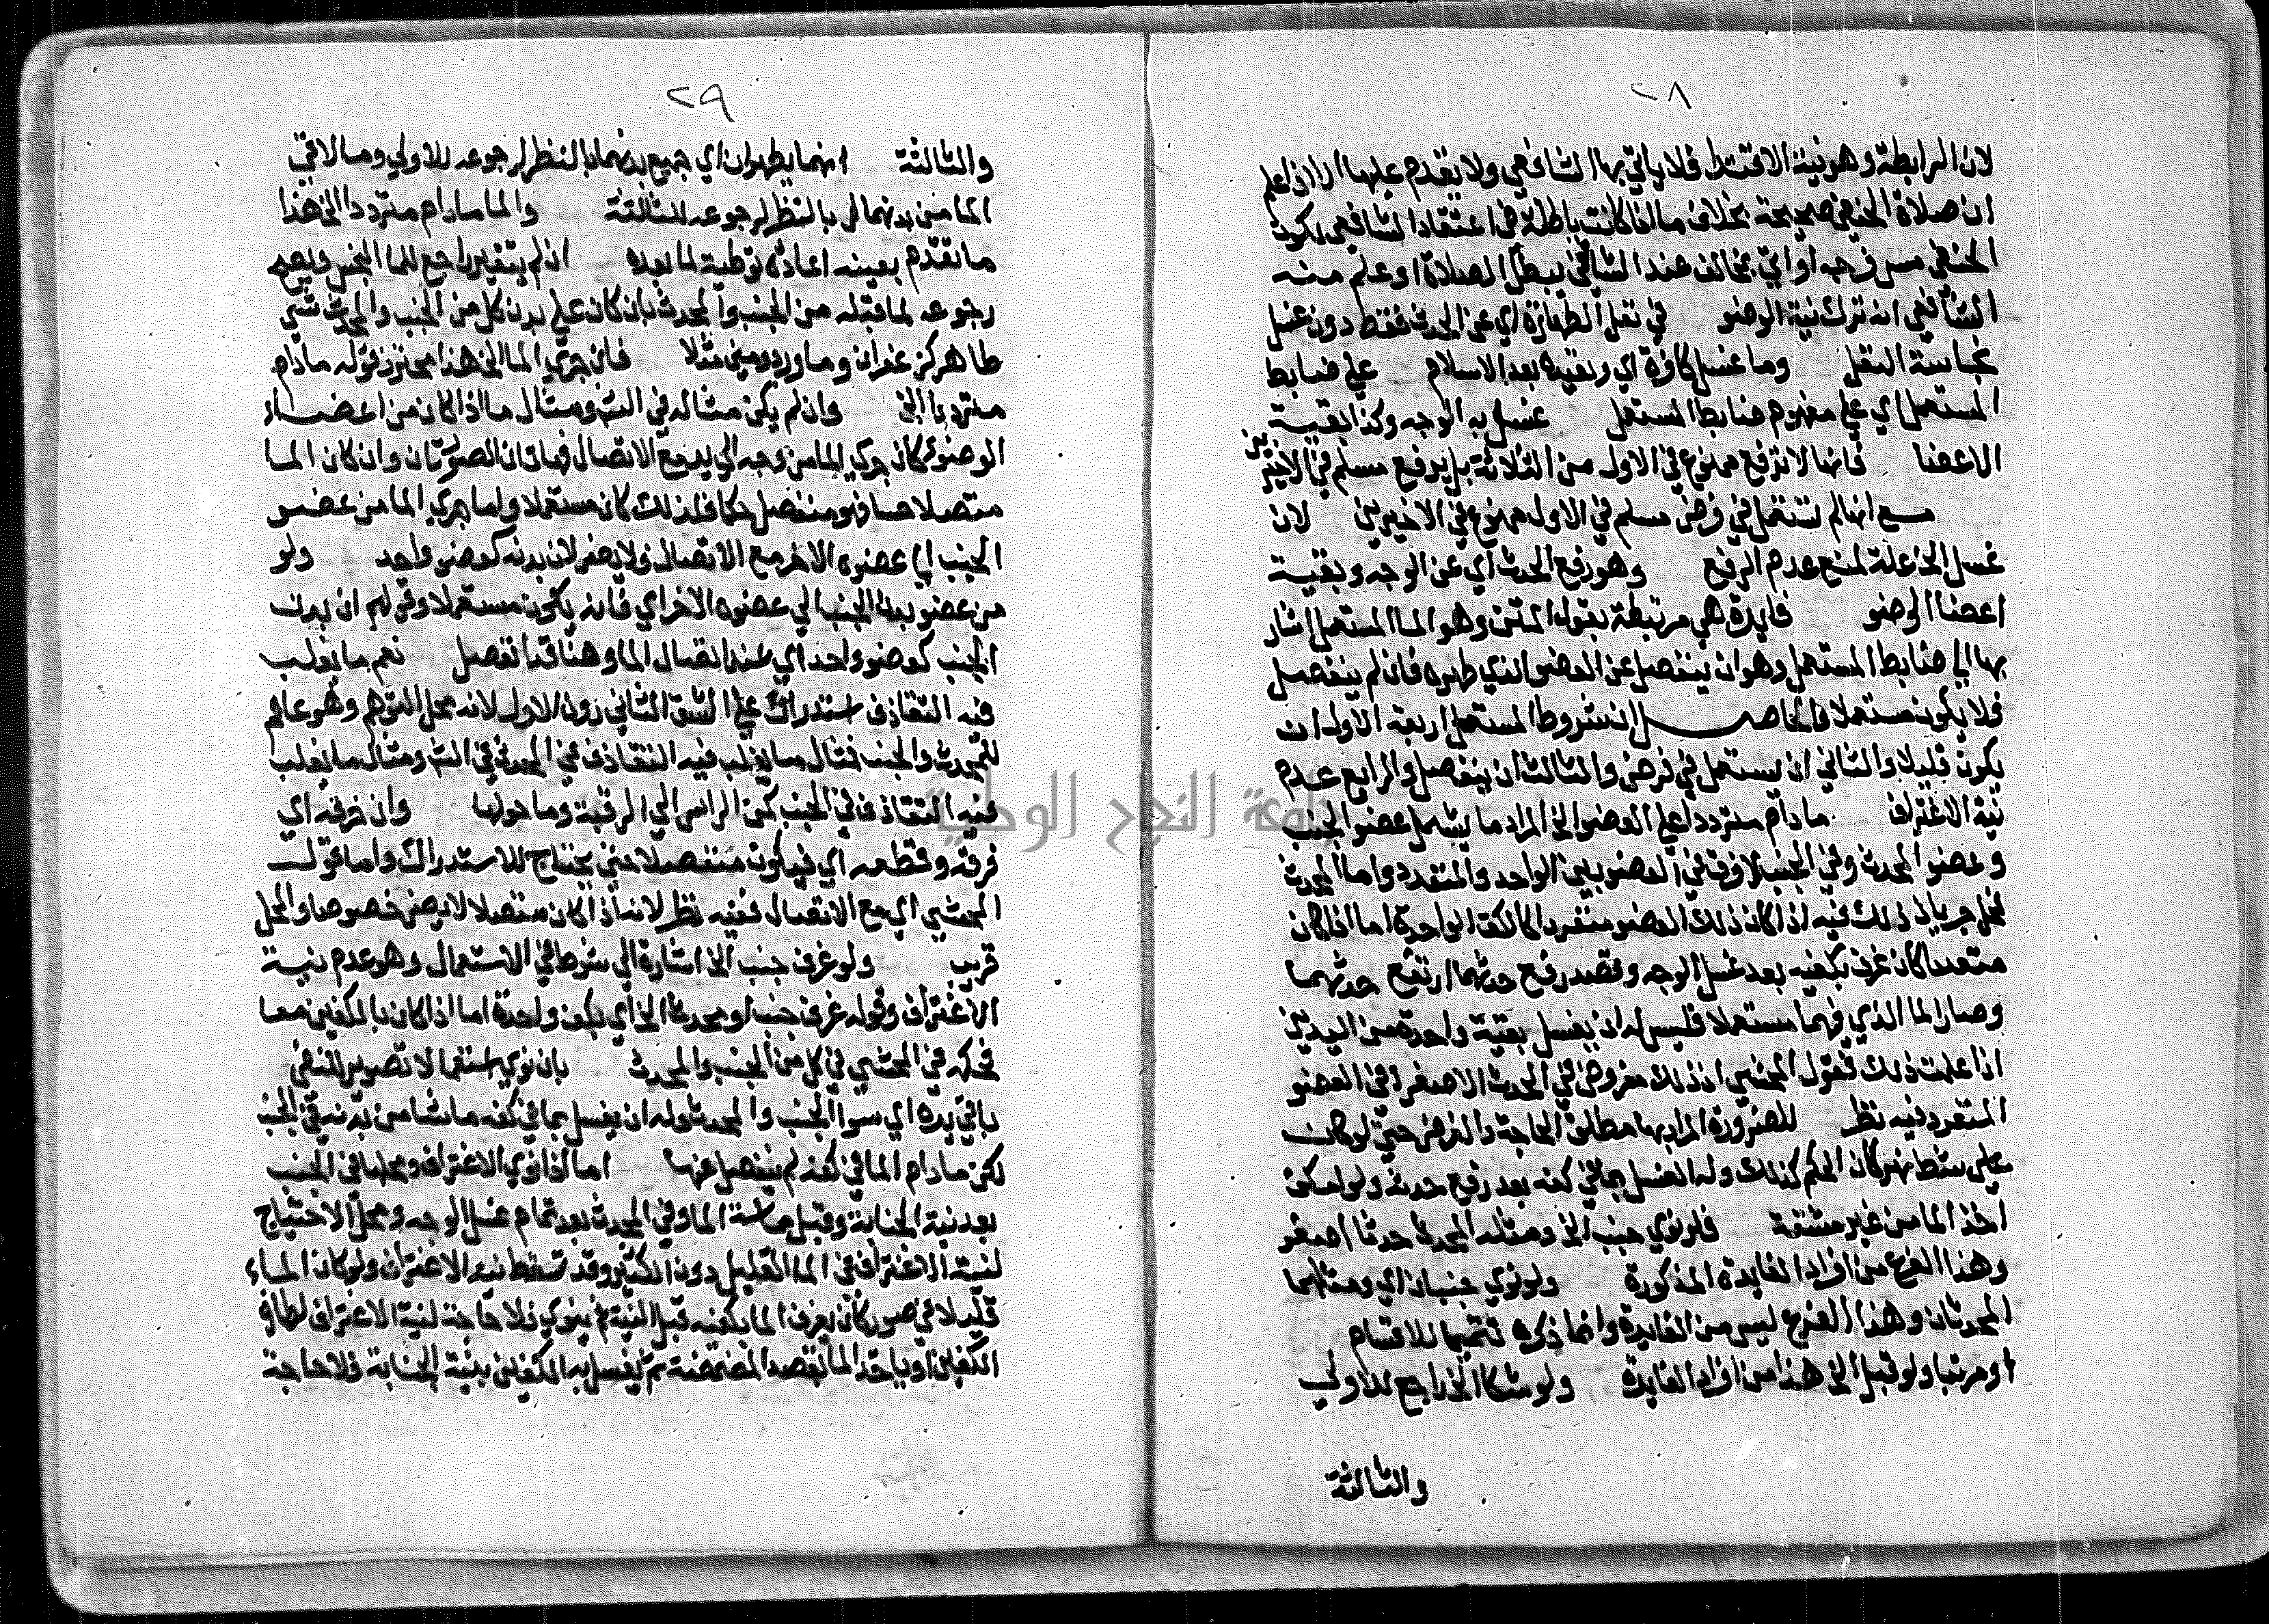 ٢٨
لان الرابطة وهو نية الاقتدا فلا ياتي بها الشافعي ولا يقدم عليها الا ان علم
ان صلاة الحنفي صحيحة بخلاف ما اذا كانت باطلة في اعتقاد الشافعي لكون
الحنفي مس فرجه او اتي بمخالف عند الشافعي يبطل الصلاة او علم منه
الشافعي انه ترك نية الوضو في نقل الطهارة اي عن الحدث فقط دون غسل
نجاسة النقل وما غسل كافرة اي وتعيده بعد الاسلام علي ضابط
المستعمل اي علي مفهوم ضابط المستعمل غسل به الوجه وكذا بقية
الاعضا فانها لا ترفع ممنوع في الاول من الثلاثة بل يرفع مسلم في الاخيرين
مع انها لم تستعمل في فرض مسلم في الاول ممنوع في الاخيرين لان
غسل الخ علة لمنع عدم الرفع وهو رفع الحدث اي عن الوجه وبقية
اعضا الوضو فايدة هي مرتبطة بقول المتن وهو الما المستعمل اشار
بها الي ضابط المستعمل وهو ان ينفصل عن العضو الذي طهره فان لم ينفصل
فلا يكون مستعملا فالحاصل ان شروط المستعمل اربعة الاول ان
يكون قليلا والثاني ان يستعمل في فرض والثالث ان ينفصل والرابع عدم
نية الاغتراف ما دام مترددا علي العضو الخ المراد ما يشمل عضو الجنب
وعضو المحدث وفي الجنب لا فرق في العضو بين الواحد والمتعدد واما المحدث
فمحل جريان ذلك فيه اذا كان ذلك العضو منفردا كالكف الواحدة اما اذا كان
متعددا كان غرف بكفيه بعد غسل الوجه وقصد رفع حدثهما ارتفع حدثهما
وصار الما الذي فيهما مستعملا فليس له ان يغسل بقية واحدة من اليدين
اذا علمت ذلك فقول المحشي ان ذلك مفروض في الحدث الاصغر في العضو
المنفرد فيه نظر للضرورة المراد بها مطلق الحاجة والغرض حتي لو كان
علي شط نهر كان الحكم كذلك وله الغسل بما في كفه بعد رفع حدثه ولو امكن
اخذ الما من غير مشقة فلو نوي جنب الخ ومثله المحدث حدثا اصغر
وهذا الفرع من افراد الفايدة المذكورة ولو نوي جنبان اي ومثلهما
المحدثان وهذا الفرع ليس من الفايدة وانما ذكره تتميما للاقسام
او مرتبا ولو قبل الخ هذا من افراد الفايدة ولو شكا الخ راجع للاولي
والثالثة
٢٩
والثالثة انهما يطهران اي جميع بدنهما بالنظر لرجوعه للاولي وما لاقي
الما من بدنهما اي بالنظر لرجوعه للثالثة والما ما دام مترددا الخ هذا
ما تقدم بعينه اعاده توطية لما بعده ان لم يتغير راجع للما النجس ويصح
رجوعه لما قبله من الجنب والمحدث بان كان علي بدن كل من الجنب والمحدث شي
طاهر كزعفران وماورد ومني مثلا فان جري الما الخ هذا محترز قوله ما دام
مترددا الخ وان لم يكن مثاله في الش ومثال ما اذا كان من اعضاء
الوضوء كان جري الما من وجهه الي يده مع الاتصال فهاتان الصورتان وان كان الما
متصلا حسا فهو منفصل حكما فلذلك كان مستعملا ولما جري الما من عضو
الجنب الي عضوه الاخر مع الاتصال ولا يضر لان بدنه كعضو واحد ولو
من عضو بدن الجنب الي عضوه الاخر اي فانه يكون مستعملا وقولهم ان بدن
الجنب كعضو واحد اي عند اتصال الما وهنا قد انفصل نعم ما يغلب
فيه التقاذف استدراك علي الشق الثاني دون الاول لانه محل التوهم وهو عام
للمحدث والجنب فمثال ما يغلب فيه التقاذف في المحدث في الش ومثال ما يغلب
فيه التقاذف في الجنب كمن الراس الي الرقبة وما حولها وان خرقه اي
فرقه وقطعه اي فيكون منفصلا حتي يحتاج للاستدراك واما قول
المحشي اي مع الاتصال ففيه نظر لانه اذا كان متصلا لا يضر خصوصا والمحل
قريب ولو غرف جنب الخ اشارة الي شرط في الاستعمال وهو عدم نية
الاغتراف وقوله غرف جنب او محدث الخ اي بكف واحدة اما اذا كان بالكفين معا
فحكمه في المحشي في كل من الجنب والمحدث بان نوي استعمالا تصوير للنفي
باقي يده اي سوا الجنب والمحدث وله ان يغسل بما في كفه ما شا من بدنه في الجنب
لكن ما دام الما في كفه لم ينفصل عنها اما اذا نوي الاغتراف ومحلها في الجنب
بعد نية الجنابة وقبل مماسة الما وفي المحدث بعد تمام غسل الوجه ومحل الاحتياج
لنية الاغتراف في الما القليل دون الكثير وقد تسقط نية الاغتراف ولو كان الماء
قليلا في صور كان يغرف الما بكفيه قبل النية ثم ينوي فلا حاجة لنية الاغتراف لطهارة
الكفين او ياخذ الما بقصد المضمضة ثم يغسل به الكفين بنية الجنابة فلا حاجة
جامعة النجاح الوطنية